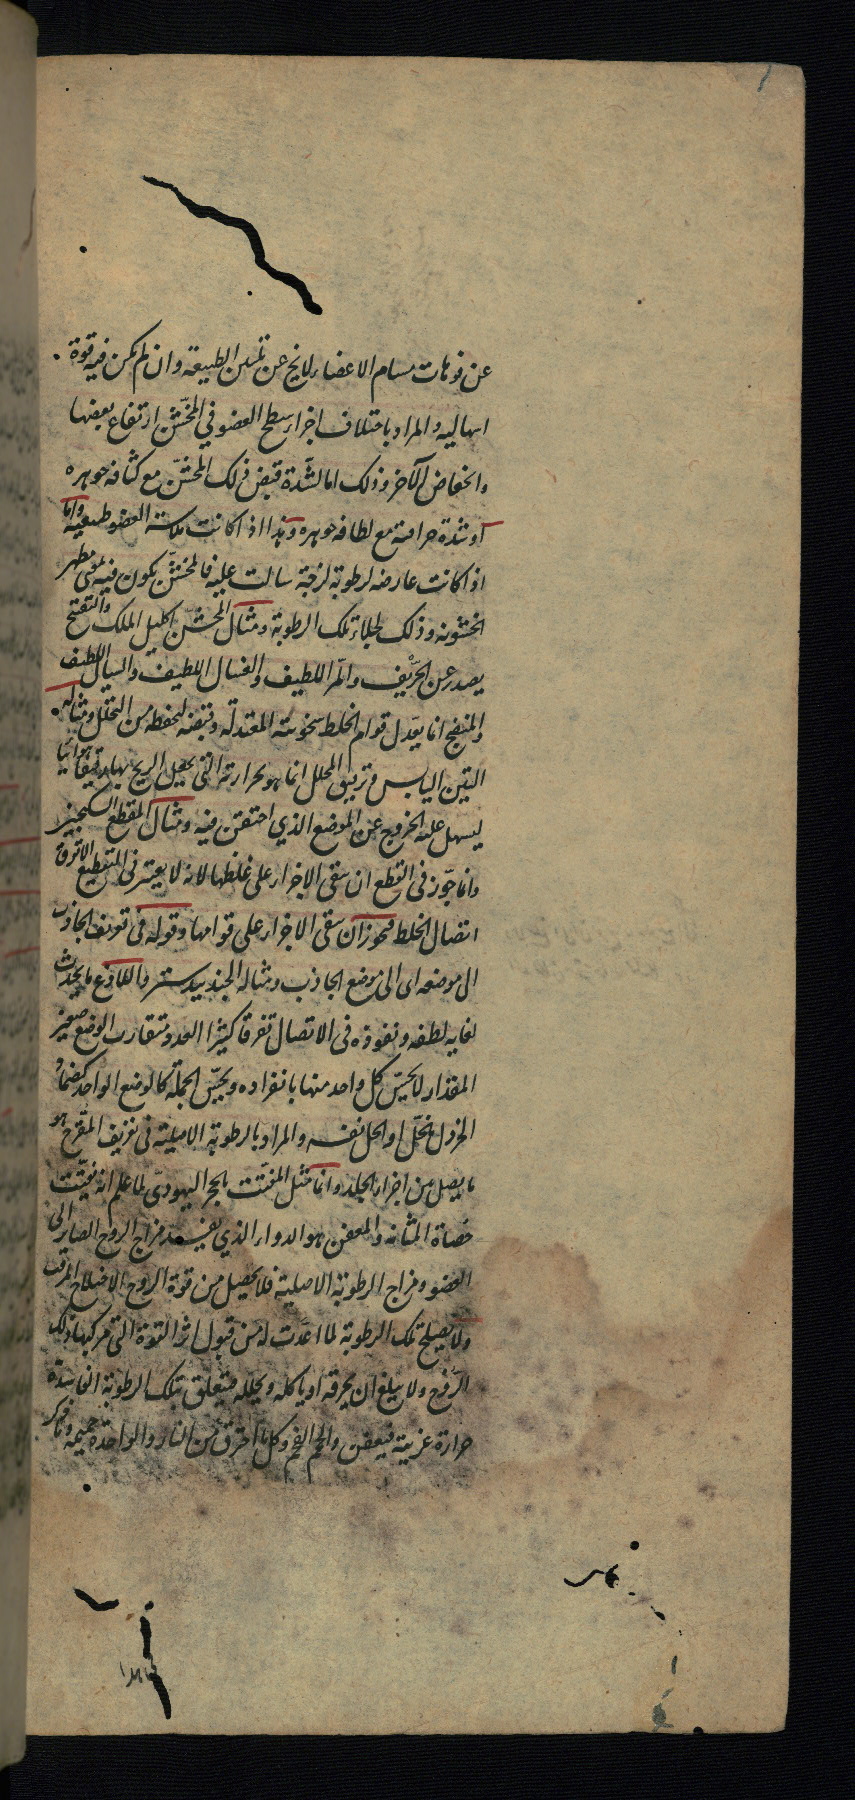 عن فوهات مسام الاعضاء لا يخ عن تليين الطبيعة وان لم يكن فيه قوة
اسهالية والمراد باختلاف اجزاء سطح العضو في المخشن ارتفاع بعضها
وانخفاض الآخر وذلك اما لشدة قبض ذلك المخشن مع كثافه جوهره
او شدة حرافته مع لطافه جوهره وهذا اذا كانت ملاسة العضو طبيعية واما
اذا كانت عارضه لرطوبة لزجة سالت عليه فالمخشن يكون فيه بمعنى مظهر
الخشونه وذلك لجلاء تلك الرطوبة ومثال المخشن اكليل الملك والتفتيح
يصدر عن الحريف والمر اللطيف والغسال اللطيف والسيال اللطيف
والمنضج انما يعدل قوام الخلط بسخونته المعتدلة وقبضه ليحفظه من التحلل ومثاله
التين اليابس وترقيق المحلل انما هو بحرارته التي يحيل الريح بها رقيقا هوائيا
ليسهل عليه الخروج عن الموضع الذي احتقن فيه ومثال المقطع السكنجبين
وانما جوز في القطع ان تبقى الاجزاء على غلظها لانه لا يعتبر في التقطيع الا تفرق
اتصال الخلط فيجوز ان تبقى الاجزاء على قوامها وقوله في تعريف الجاذب
الى موضعه اى الى موضع الجاذب ومثاله الجندبيدستر واللاذع ما يحدث
لغايه لطفه ونفوذه فى الاتصال تفرقا كثيرا العدد متقارب الوضع صغير
المقدار لا يحس كل واحد منها بانفراده ويحس الجملة كالوضع الواحد كضماد
الخردل بالخل او الخل نفسه والمراد بالرطوبة الاصلية فى تعريف المقرح هو
ما يصل من اجزاء الجلد وانما مثل المفتت بالحجر اليهودى لما علم انه تفتت
حصاة المثانه والمعفن هو الدواء الذي يفسد مزاج الروح الصاير الى
العضو ومزاج الرطوبة الاصلية فلا يحصل من قوة الروح الاصلاح المرقب
ولا يصلح تلك الرطوبة لما اعدت له من قبول اثر القوة التى مركبها ذلك
الروح ولا يبلغ ان يحرقه او ياكله ويحلله فيتعلق بتلك الرطوبة الفاسدة
حرارة غريبة فيعفن والحمم الفحم وكل ما احترق من النار والواحدة حممه وما ذكر